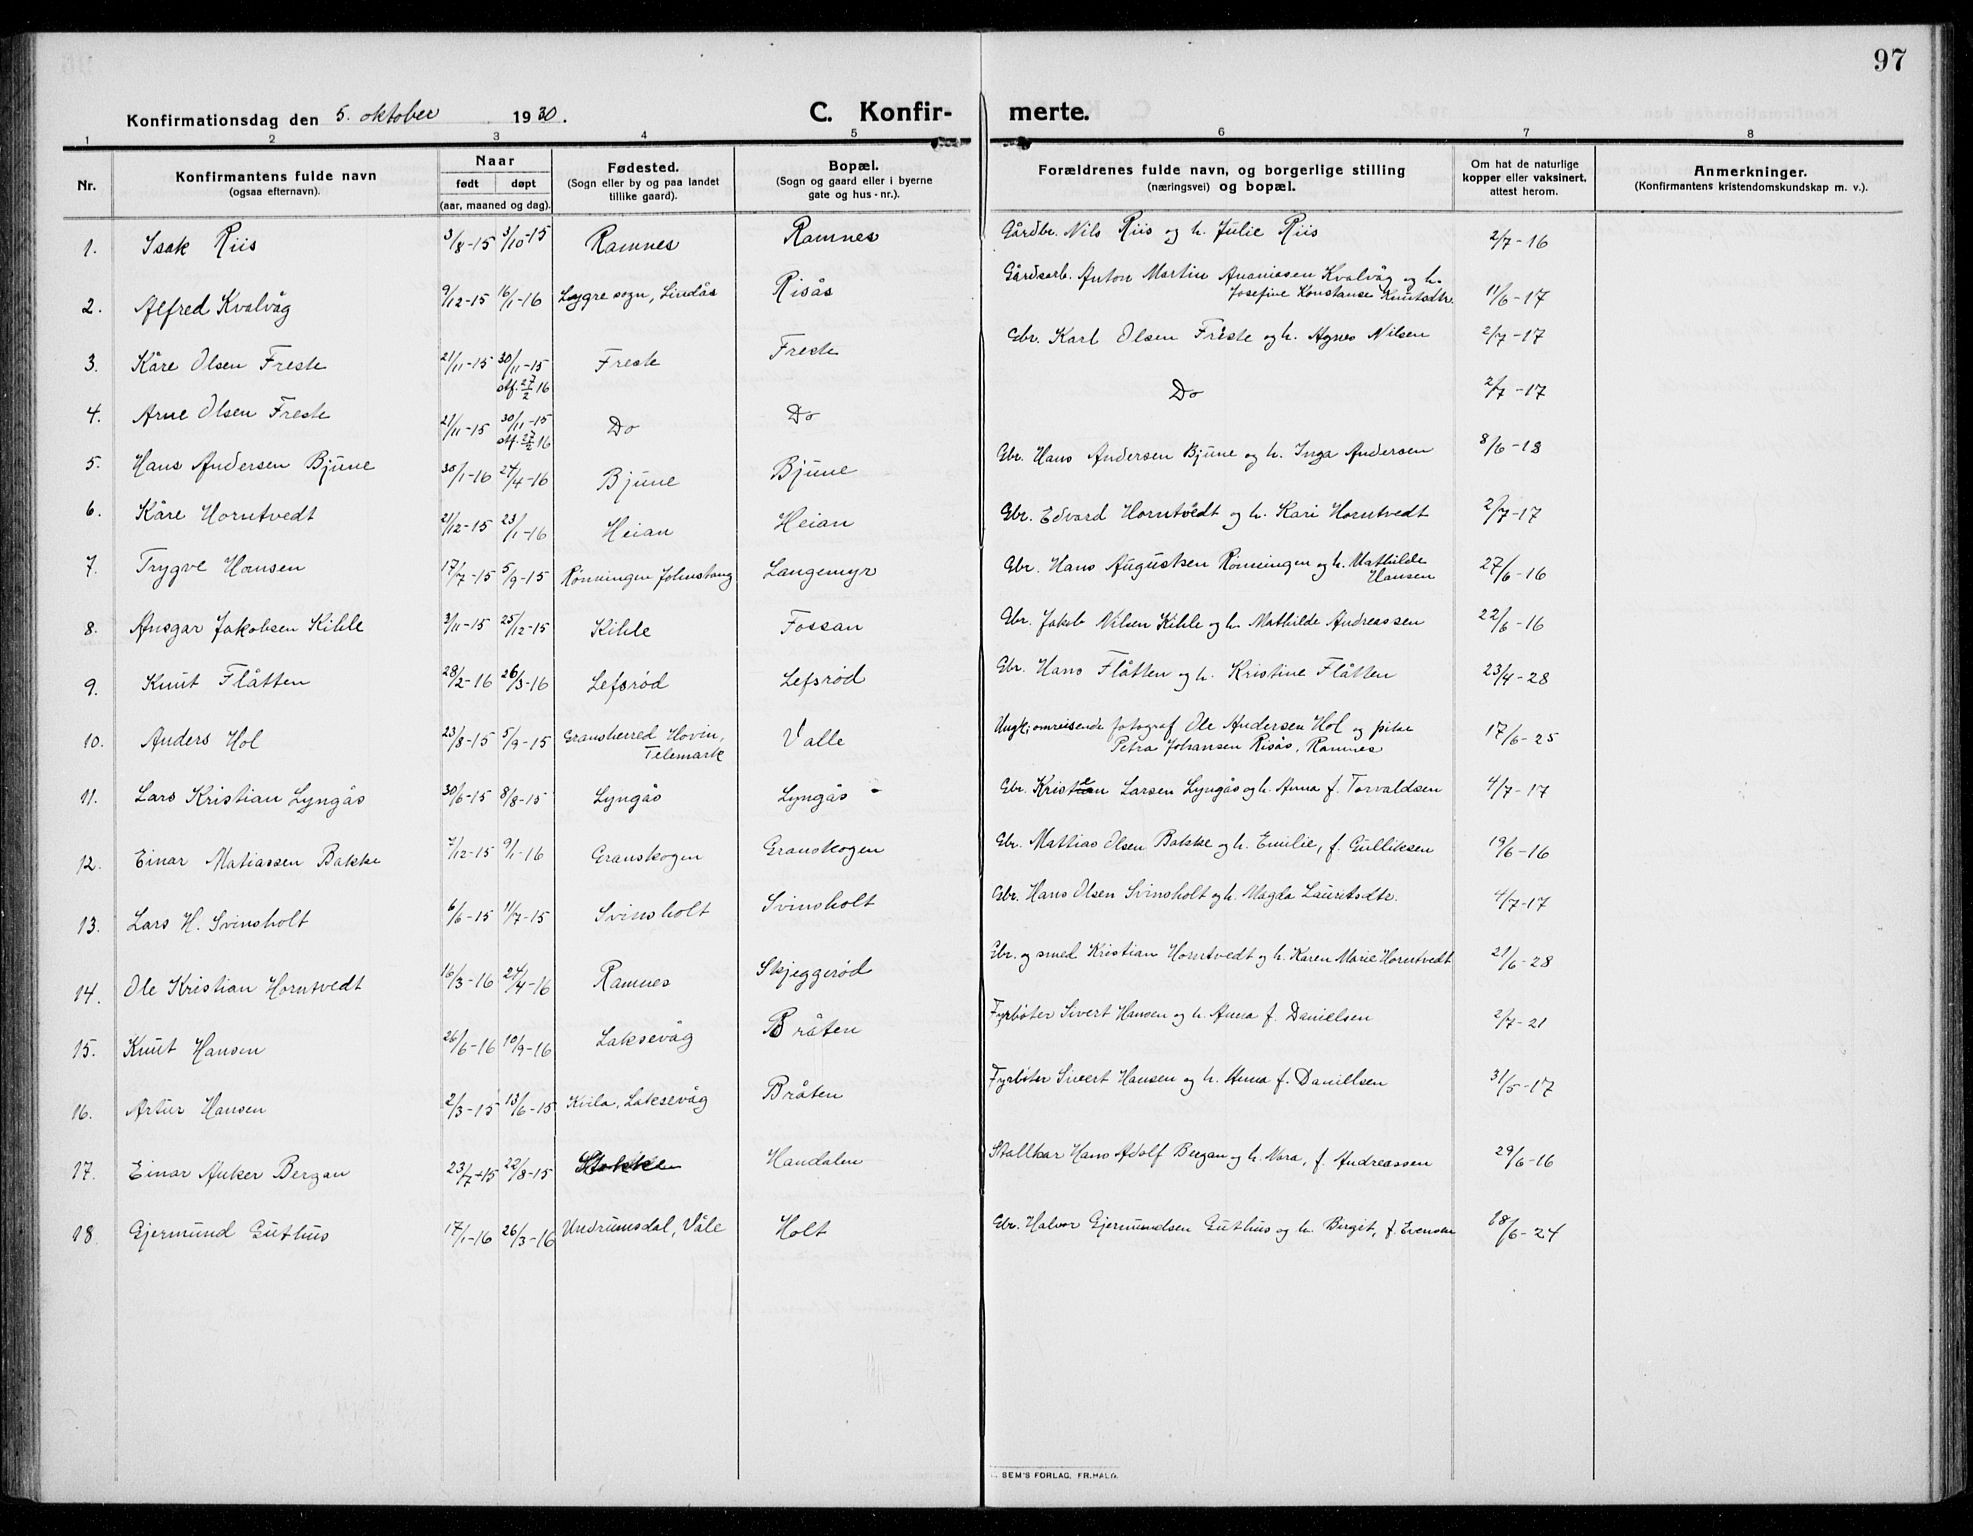 97
Konfirmationsdag den 5. oktober 1930.
C. Konfirmerte.
1 2 3 4 5 6 7 8
Nr.
Konfirmantens fulde navn
(ogsaa efternavn).
Naar
født døpt
(aar, maaned og dag).
Fødested.
(Sogn eller by og paa landet
tillike gaard).
Bopæl.
(Sogn og gaard eller i byerne
gate og hus-nr.).
Forældrenes fulde navn, og borgerlige stilling
(næringsvei) og bopæl.
Om hat de naturlige
kopper eller vaksinert,
attest herom.
Anmerkninger.
(Konfirmantens kristendomskundskap m. v.).
1. Isak Riis 3/8-15 3/10-15 Ramnes Ramnes Gårdbr. Nils Riis og h. Julie Riis 2/7-16
2. Alfred Kvalvåg 9/12-15 16/1-16 Lygre sogn, Lindås Risås Gårdsarb. Anton Martin Ananiasen Kvalvåg og h.
Josefine Konstanse Knutsdtr. 11/6-17
3. Kåre Olsen Freste 21/11-15 30/11-15 Freste Freste Gbr. Karl Olsen Freste og h. Agnes Nilsen 2/7-17
stf. 27/2 16
4. Arne Olsen Freste 21/11-15 30/11-15 Do Do Do 2/7-17
stf. 27/2 16
5. Hans Andersen Bjune 30/1-16 24/4-16 Bjune Bjune Gbr. Hans Andersen Bjune og h. Inga Andersen 8/6-18
6. Kåre Horntvedt 21/12-15 23/1-16 Heian Heian Gbr. Edvard Horntvedt og h. Kari Horntvedt 2/7-17
7. Trygve Hansen 17/7-15 5/9-15 Rønningen Johnstang Langemyr Gbr. Hans Augustsen Rønningen og h. Mathilde
Hansen 27/6-16
8. Ansgar Jakobsen Kihle 3/11-15 25/12-15 Kihle Fossan Gbr. Jakob Nilsen Kihle og h. Mathilde Andreassen 22/6-16
9. Knut Flåtten 28/2-16 26/3-16 Lefsrød Lefsrød Gbr. Hans Flåtten og h. Kristine Flåtten 23/4-28
10. Anders Hol 23/8-15 5/9-15 Gransherred Hovin, Valle Ungk. omreisende fotograf Ole Andersen Hol og pike
Telemark Petra Johansen Risås, Ramnes 17/6-25
11. Lars Kristian Lyngås 30/6-15 8/8-15 Lyngås Lyngås Gbr. Kristen Larsen Lyngås og h. Anna f. Torvaldsen 4/7-17
12. Einar Matiassen Bakke 7/12-15 9/1-16 Granskogen Granskogen Gbr. Mathias Olsen Bakke og h. Emilie, f. Gulliksen 19/6-16
13. Lars H. Svinsholt 6/6-15 11/7-15 Svinsholt Svinsholt Gbr. Hans Olsen Svinsholt og h. Magda Lauritsdtr. 4/7-17
14. Ole Kristian Horntvedt 16/3-16 24/4-16 Ramnes Skjeggerød Gbr. og smed Kristian Horntvedt og h. Karen Marie Horntvedt 21/6-28
15. Knut Hansen 26/6-16 10/9-16 Laksevåg Bråten Fyrbøter Sivert Hansen og h. Anna f. Daniellsen 2/7-21
16. Artur Hansen 2/3-15 13/6-15 Kvila, Laksevåg Bråten Fyrbøter Sivert Hansen og h. Anna f. Daniellsen 31/5-17
17. Einar Anker Bergan 23/7-15 22/8-15 Stokke Handalen Stallkar Hans Adolf Bergan og h. Nora, f. Andreassen 29/6-16
18. Gjermund Guthus 17/1-16 26/3-16 Undrumsdal, Våle Holt Gbr. Halvor Gjermundsen Guthus og h. Birgit, f. Evensen 18/6-24
SEM'S FORLAG, FR.HALD.